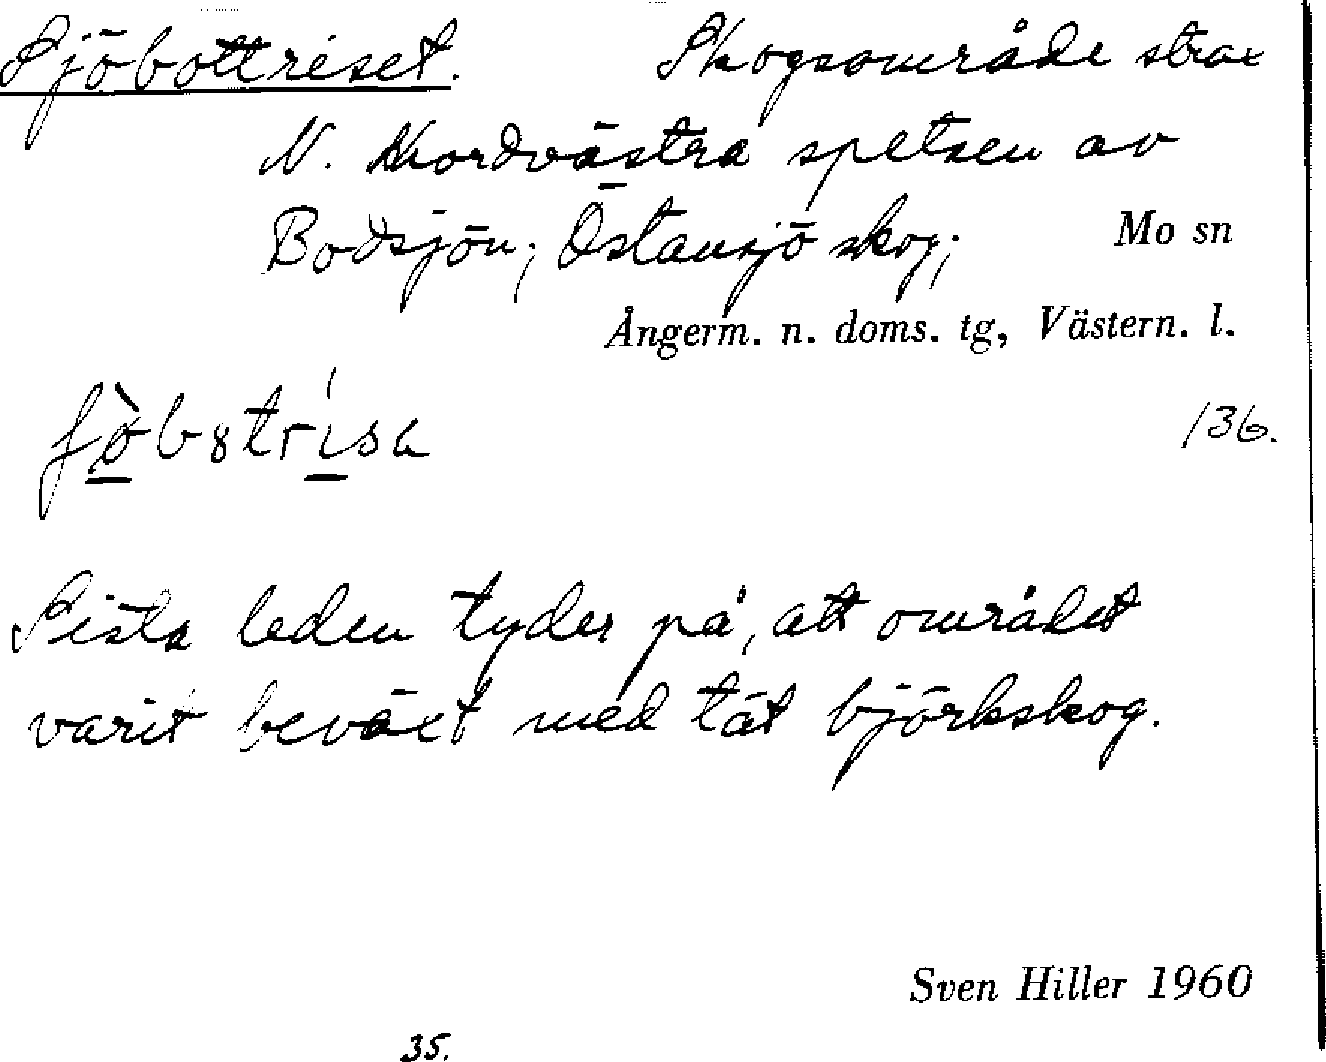 Sjöbottriset. Skogsområde strax
N. Nordvästra spetsen av
Bodsjön; Östansjö skog; Mo sn
Ångerm. n. doms. tg, Västern. l.
ʃø̀bɞtrísa 136.
Sista leden tyder på, att området
varit beväxt med tät björkskog.
Sven Hiller 1960
35.